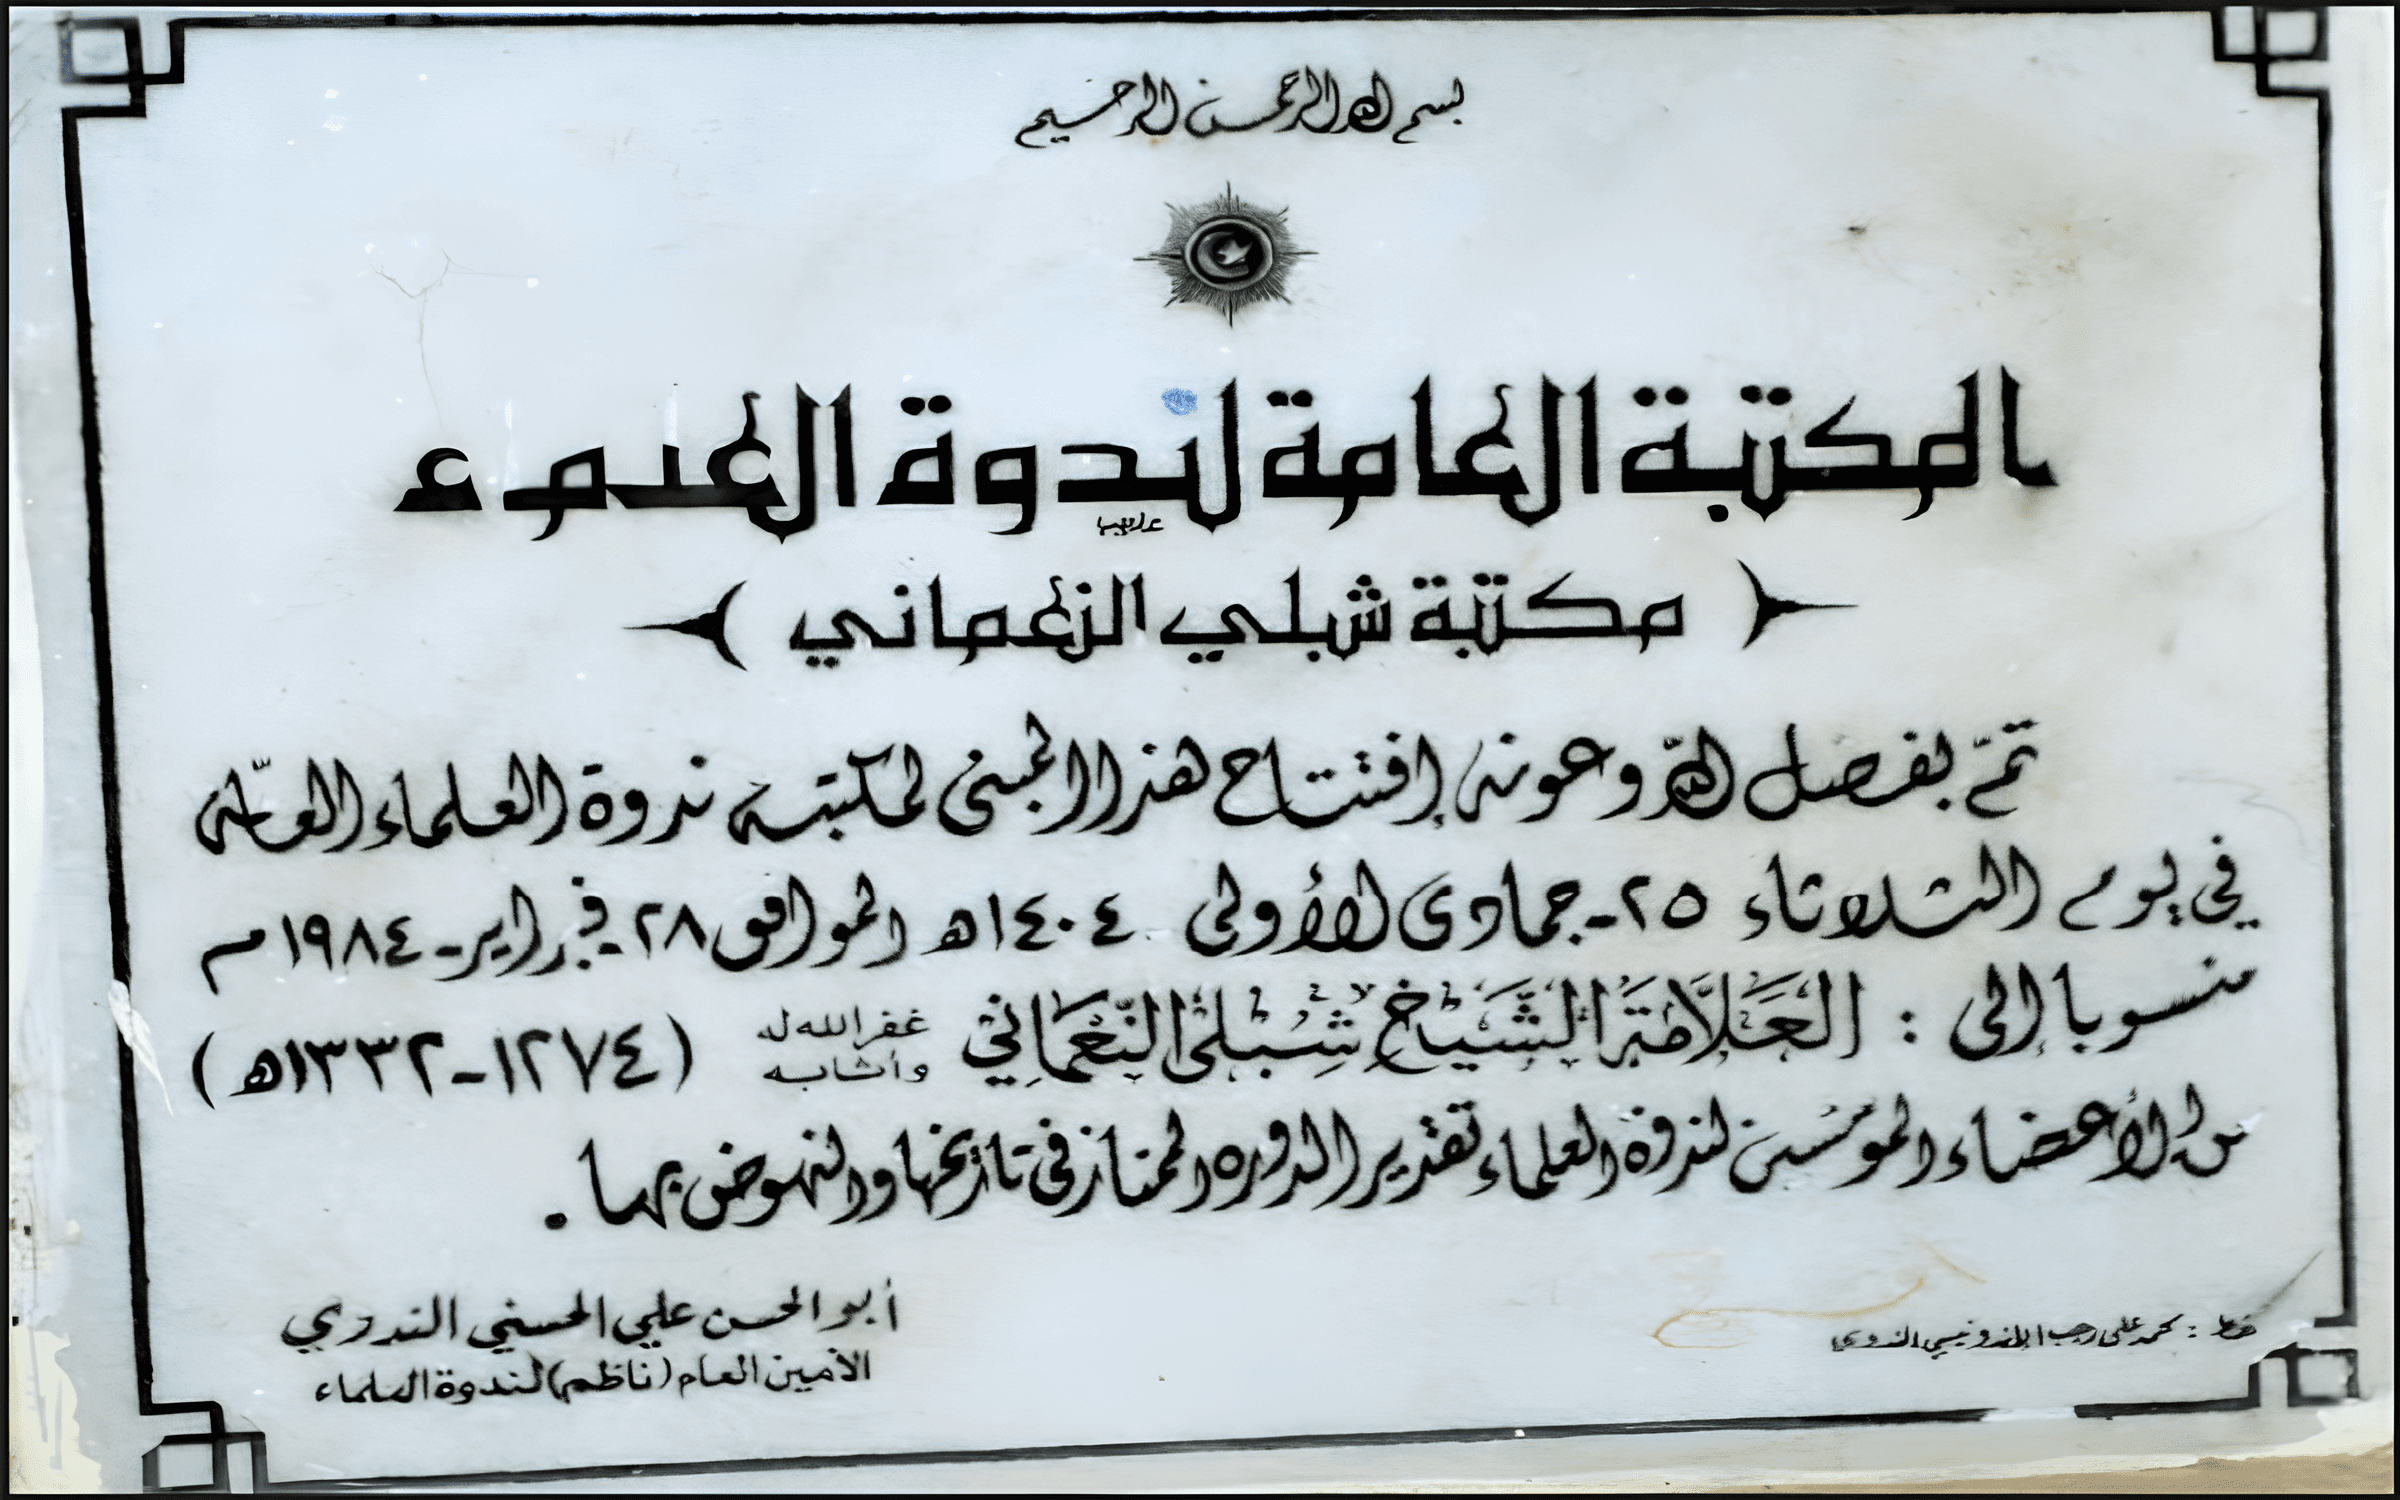 بسم الله الرحمن الرحيم
المكتبة العامة لندوة العلماء
مكتبة شبلي النعماني
تمّ بفضل اللّه وعونه إفتتاح هذا المبنى لمكتبة ندوة العلماء العامّة
في يوم الثلاثاء ٢٥-جمادى الأولى ١٤٠٤ﻫ الموافق ٢٨-فبراير-١٩٨٤م
منسوبا إلى : العَلاَّمَة الشَّيْخ شِبْلى النُّعْمَانِي غفر الله له وأثابه (١٢٧٤-١٣٣٢ﻫ)
من الأعضاء المؤسسين لندوة العلماء تقديرا لدوره الممتاز في تاريخها والنهوض بها.
أبو الحسن علي الحسني الندوي
الأمين العام (ناظم) لندوة العلماء
خط : محمد على رجب الندوي